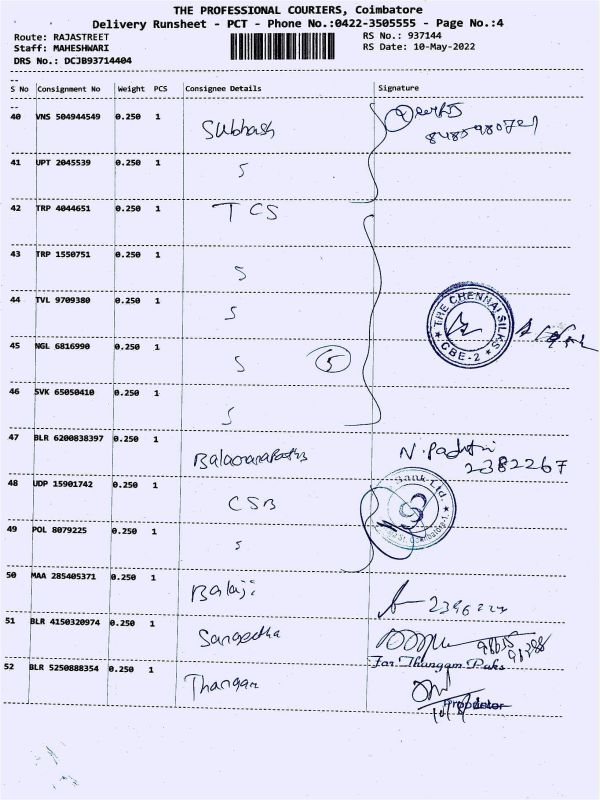 THE PROFESSIONAL COURIERS, Coimbatore
Delivery Runsheet - PCT - Phone No.:0422-3505555 - Page No.:4
Route: RAJASTREET RS No.: 937144
Staff: MAHESHWARI RS Date: 10-May-2022
DRS No.: DCJB93714404
S No Consignment No Weight PCS Consignee Details Signature
40 VNS 504944549 0.250 1 Subhash
41 UPT 2045539 0.250 1 5
42 TRP 4044651 0.250 1 TCS
43 TRP 1550751 0.250 1 5
44 TVL 9709380 0.250 1 5
THE CHENNAI SILKS
★ CBE-2 ★
45 NGL 6816990 0.250 1 5 5
46 SVK 65050410 0.250 1 5
47 BLR 6200838397 0.250 1 N.
2382267
48 UDP 15901742 0.250 1 CSB
Bank Ltd.
49 POL 8079225 0.250 1 5
50 MAA 285405371 0.250 1 Balaji
51 BLR 4150320974 0.250 1 Sangeetha
For Thungam Paks
52 BLR 5250888354 0.250 1 Thangam
Proprietor